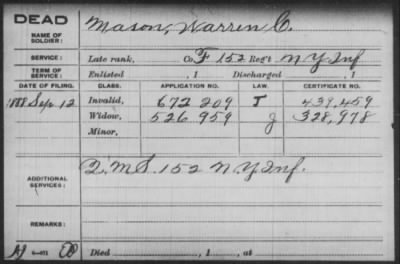 DEAD
NAME OF SOLDIER: Mason, Warren C.
SERVICE: Late rank, Co. F 152 Reg't N Y Inf
TERM OF SERVICE: Enlisted , 1 Discharged , 1
DATE OF FILING. CLASS. APPLICATION NO. LAW. CERTIFICATE NO.
1888 Sep. 12 Invalid, 672 209 J 439,459
Widow, 526 959 J 328,978
Minor,
ADDITIONAL SERVICES: Q.M.S. 152 N Y Inf.
REMARKS:
Died , 1 , at